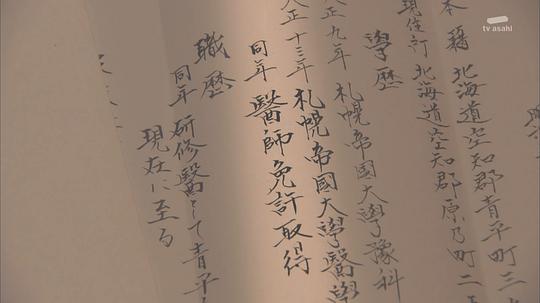 tv asahi
本籍 北海道空知郡青平町三
現住所 北海道空知郡原乃町二
學歴
大正九年 札幌帝國大學豫科
大正十三年 札幌帝國大學醫學
同年 醫師免許取得
職歴
同年 研修醫として青平
現在に至る